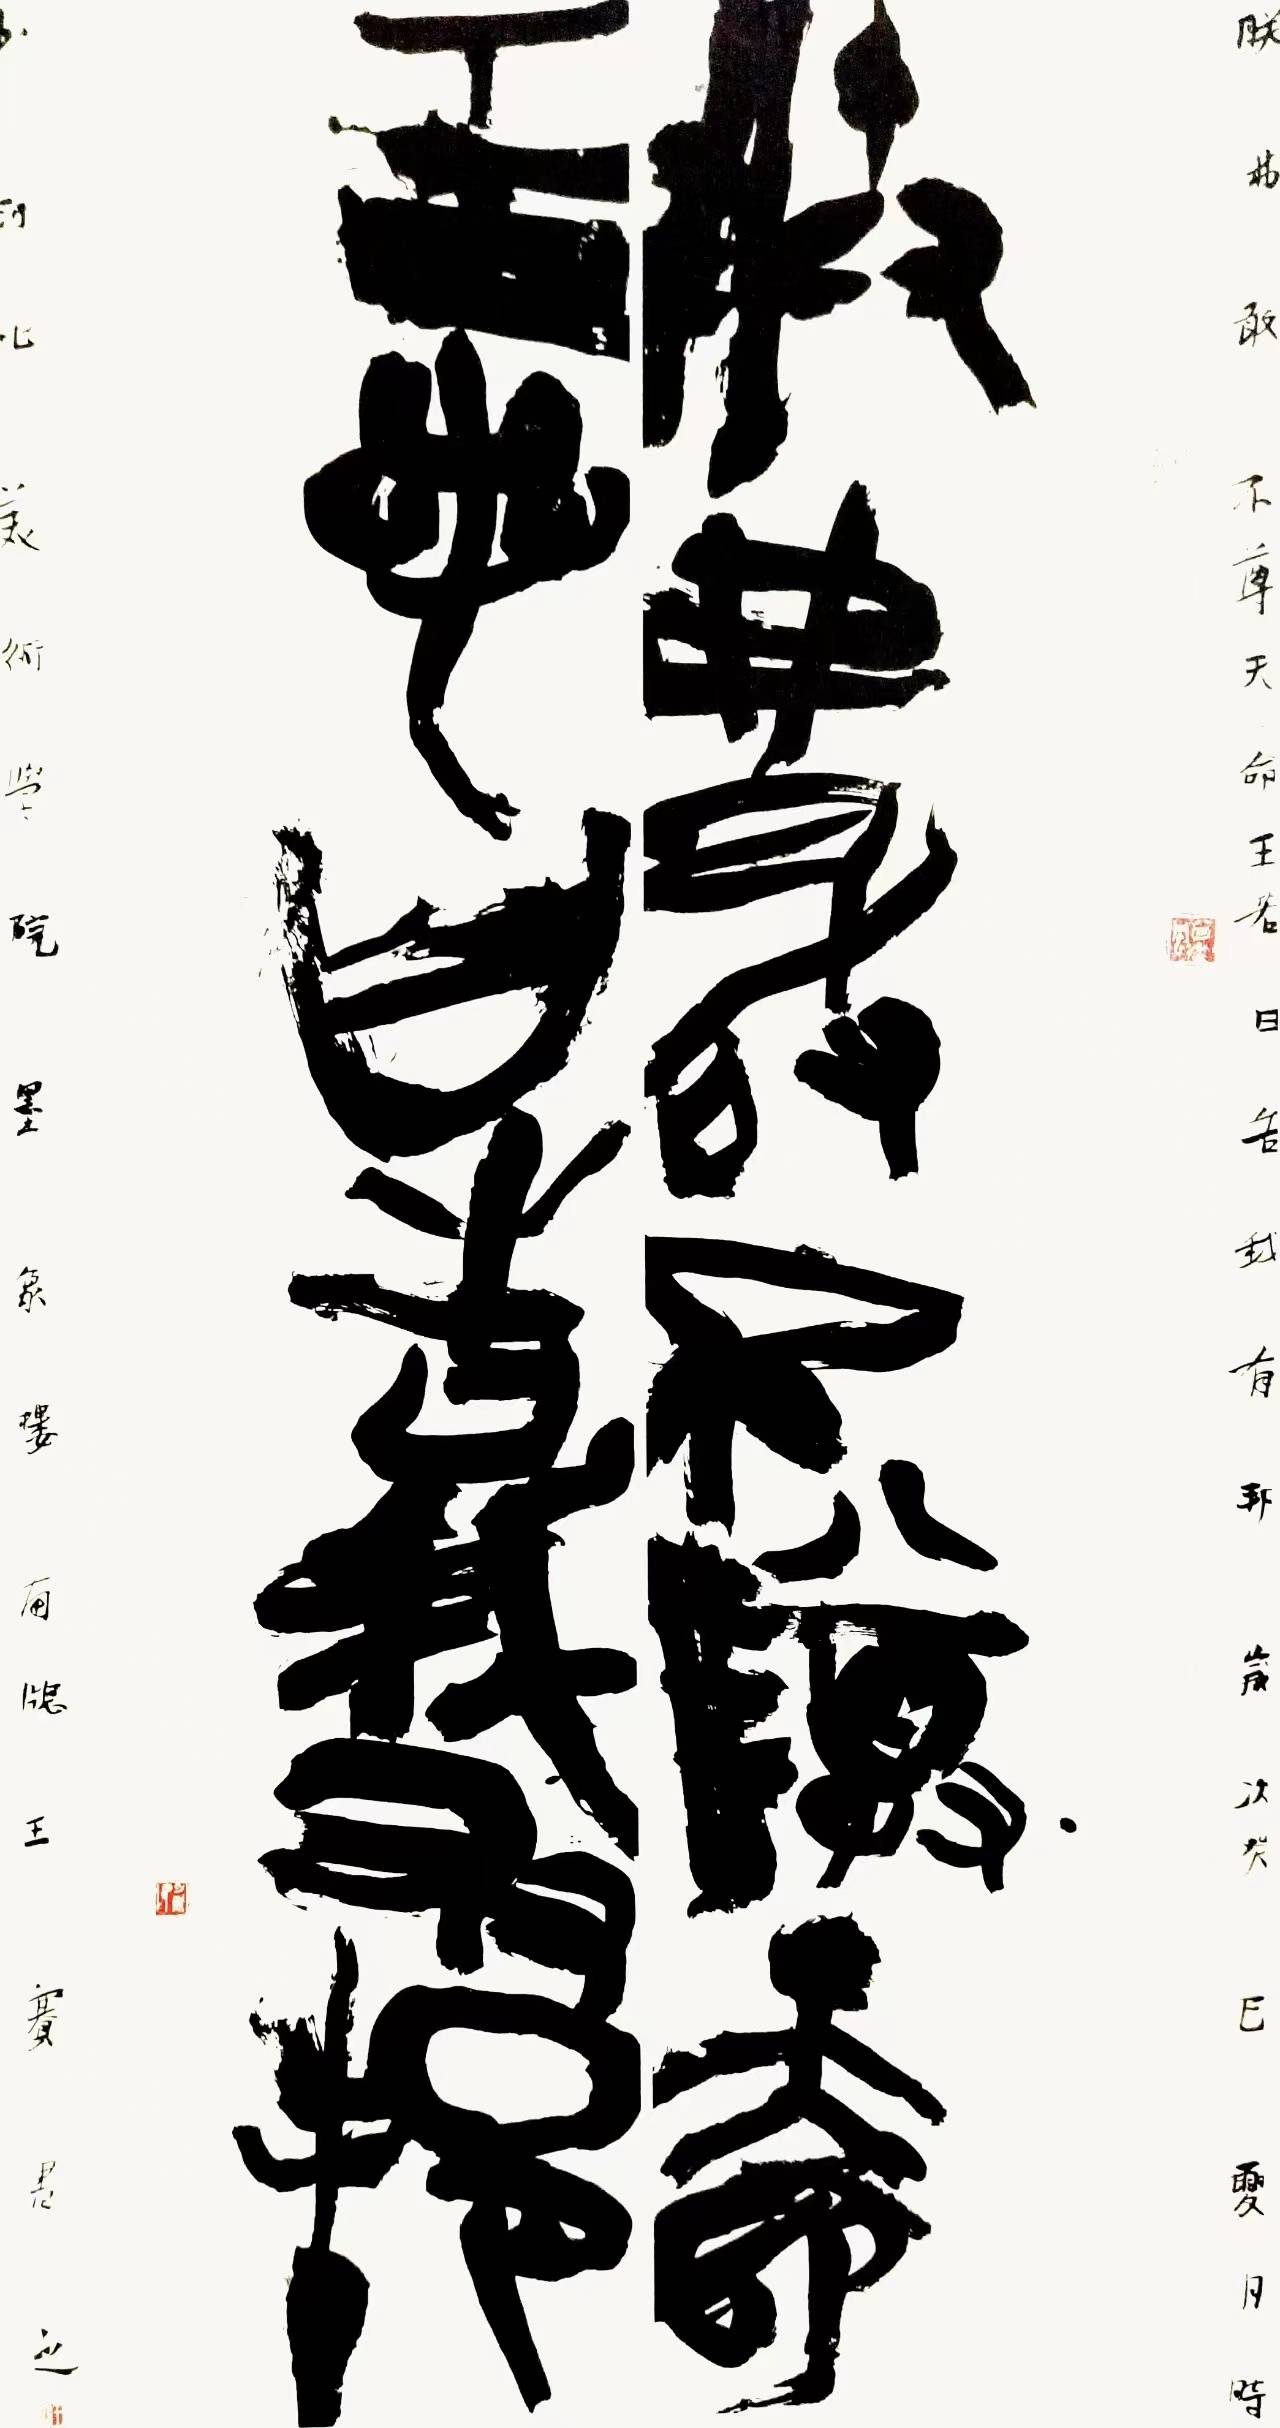 朕弗敢不尊天命王若曰告我有邦歲次癸巳夏月時
朕弗敢不尊天命
王若曰告我有邦
北美術學院墨象樓南牕王賽書